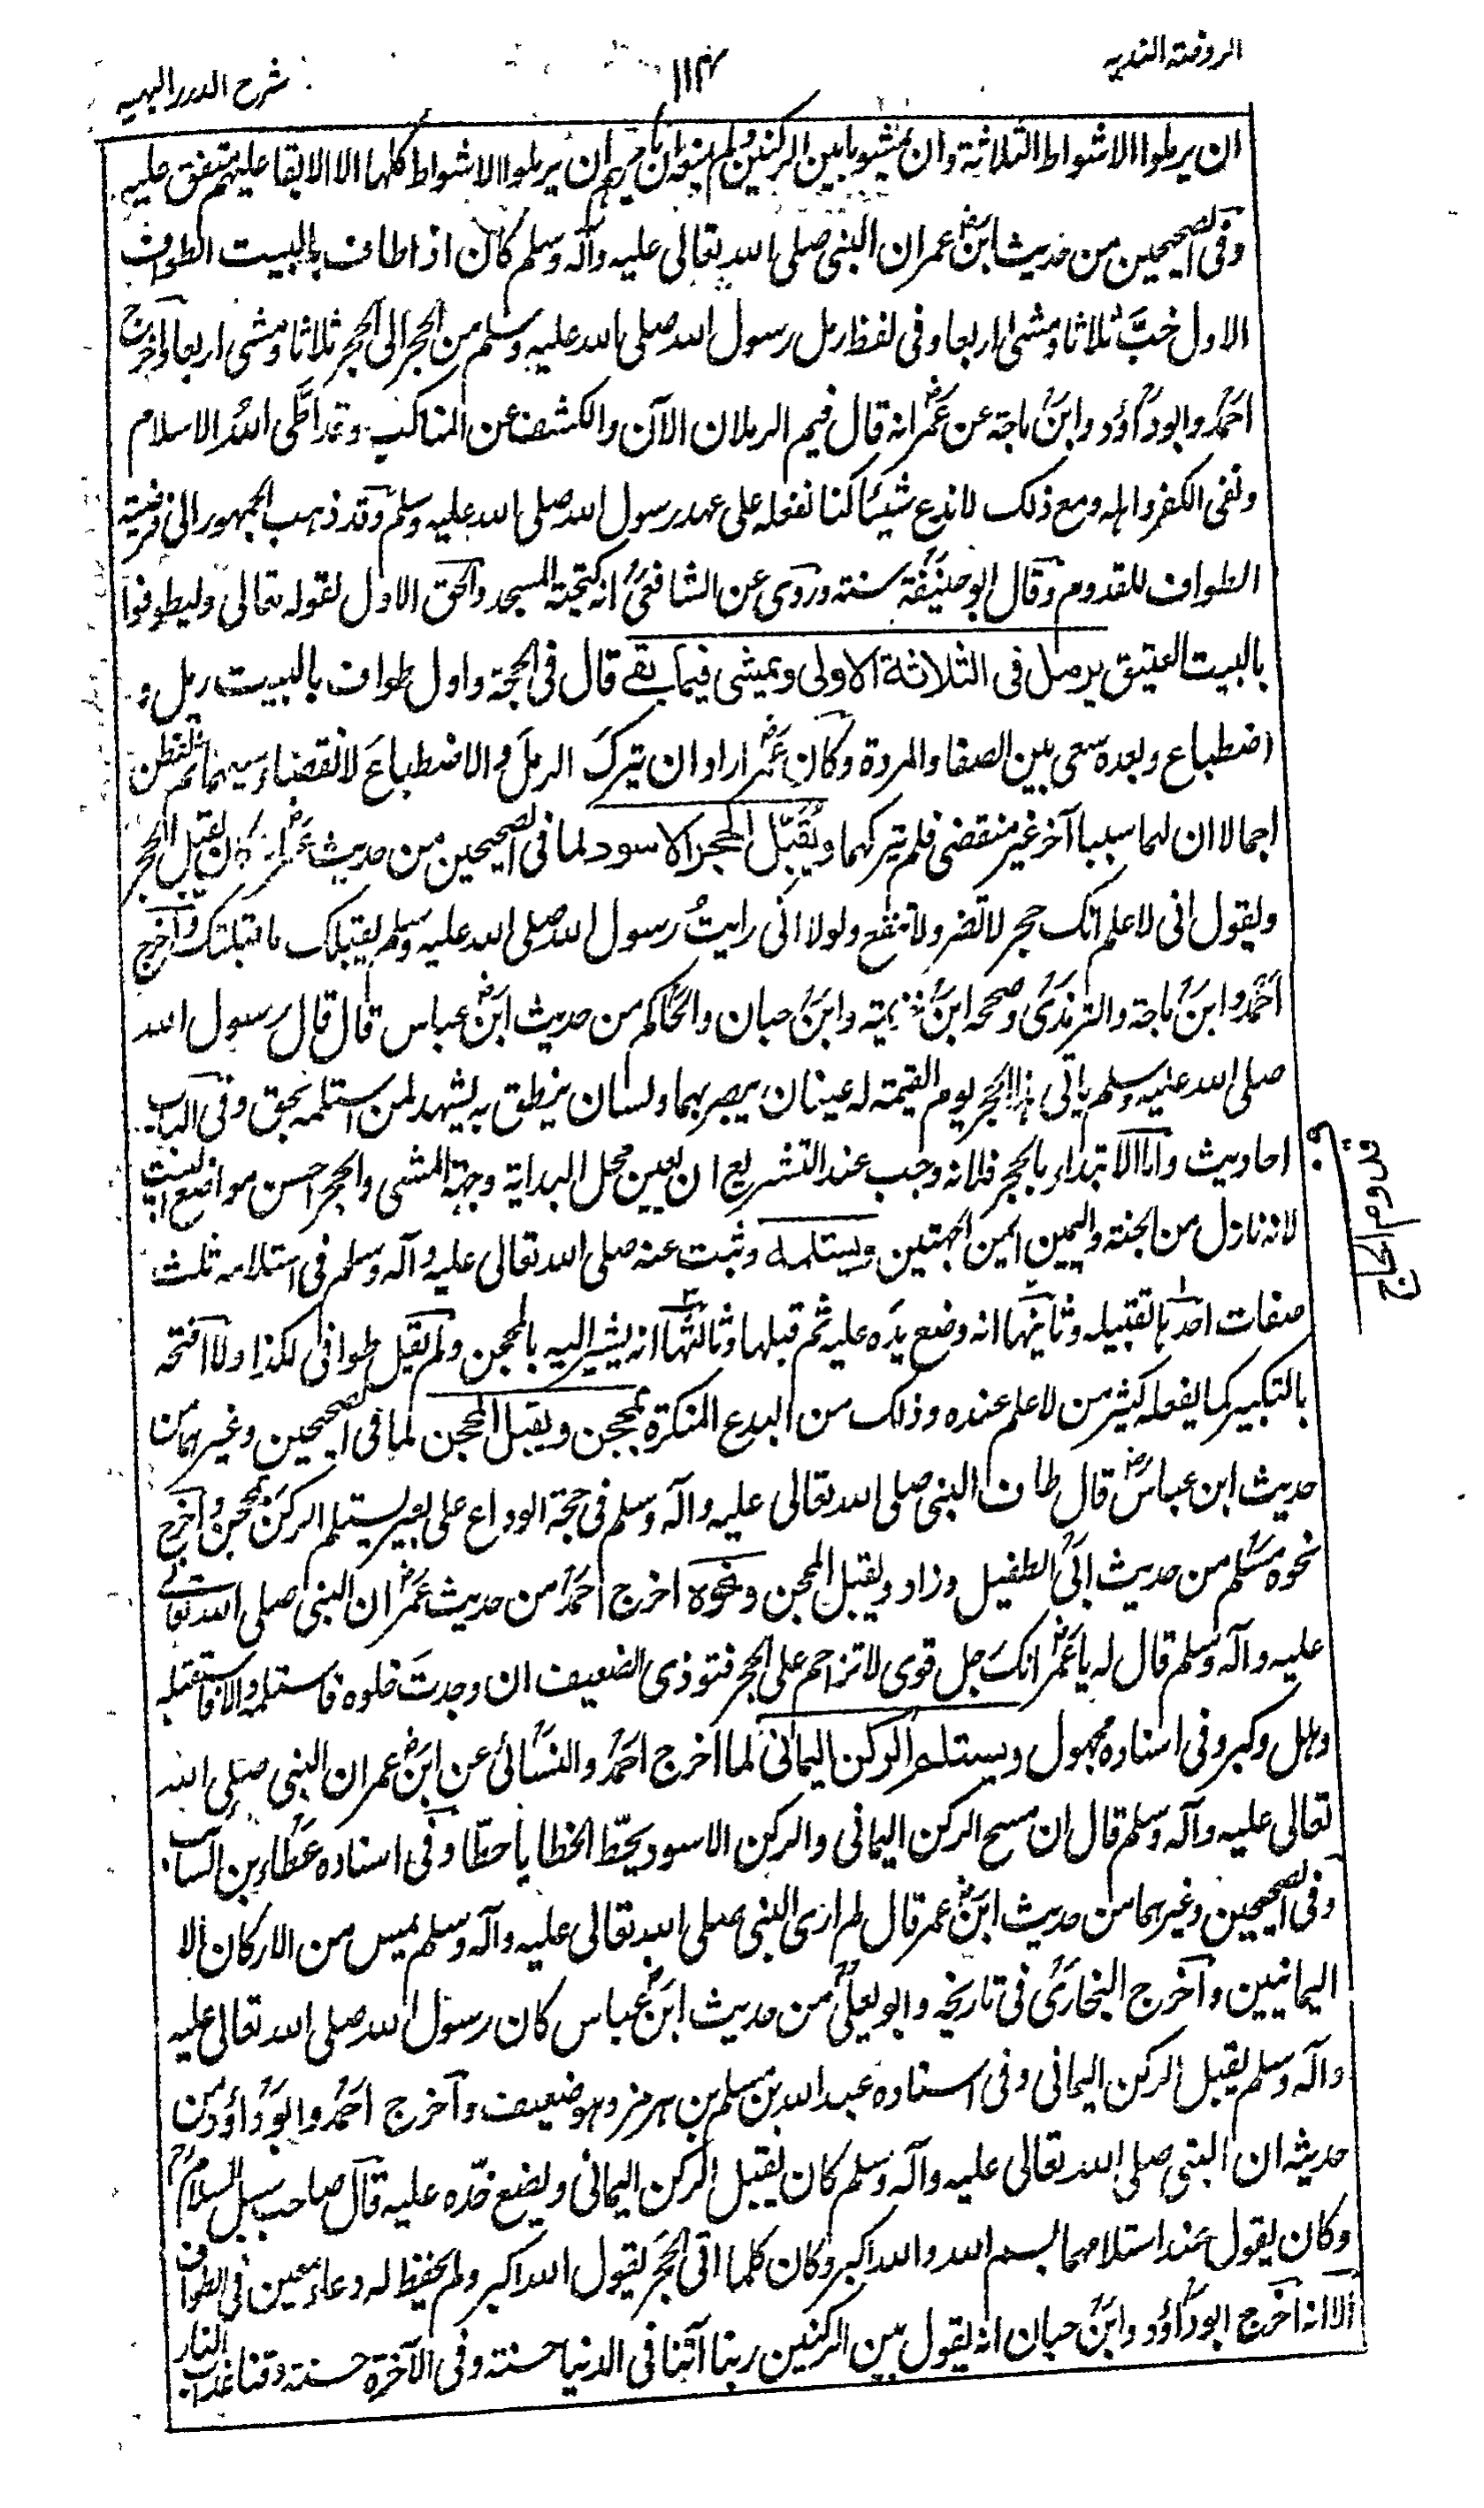 الروضة الندية
١١٣
شرح الدرر البهية
ان يرملوا الاشواط الثلاثة وان يمشوا ما بين الركنين ولم يمنعه ان يأمرهم ان يرملوا الاشواط كلها الا الابقا عليهم متفق عليه
وفي الصحيحين من حديث ابن عمر ان النبي صلى الله تعالى عليه وآله وسلم كان اذا طاف بالبيت الطواف
الاول خبَّ ثلاثا ومشى اربعا وفي لفظ رمل رسول الله صلى الله عليه وسلم من الحجر الى الحجر ثلاثا ومشى اربعا واخرج
احمد وابو داؤد وابن ماجة عن عمر انه قال فيم الرملان الآن والكشف عن المناكب وقد اطّى اللهُ الاسلام
ونفى الكفر واهله ومع ذلك لا ندع شيئا كنا نفعله على عهد رسول الله صلى الله عليه وسلم وقد ذهب الجمهور الى فرضية
الطواف للقدوم وقال ابو حنيفة سنة وروى عن الشافعي انه كتحية المسجد والحق الاول لقوله تعالى وليطوفوا
بالبيت العتيق يرمل في الثلاثة الاولى ويمشي فيما بقي قال في الحجة واول طواف بالبيت رمل و
اضطباع وبعده سعى بين الصفا والمروة وكان عمر اراد ان يترك الرمل والاضطباع لانقضاء سببهما ثم تفطن
اجمالا ان لهما سببا آخر غير منقضى فلم يتركهما ويُقَبّل الحجر الاسود لما في الصحيحين من حديث عمر انه كان يقبل الحجر
ويقول اني لاعلم انك حجر لا تضر ولا تنفع ولولا اني رايتُ رسول الله صلى الله عليه وسلم يقبلك ما قبلتك واخرج
احمد وابن ماجة والترمذي وصححه ابن خزيمة وابن حبان والحاكم من حديث ابن عباس قال قال رسول الله
صلى الله عليه وسلم ياتي هذا الحجر يوم القيمة له عينان يبصر بهما ولسان ينطق به يشهد لمن استلمه بحق وفي الباب
احاديث واما الابتداء بالحجر فلانه وجب عند التشريع ان يعين محل البداية وجهة المشى والحجر احسن مواضع البيت
لانه نازل من الجنة واليمين ايمن الجهتين ويستلمه وثبت عنه صلى الله تعالى عليه وآله وسلم في استلامه ثلث
صفات احدها تقبيله وثانيها انه وضع يدَه عليه ثم قبلها وثالثها انه يشير اليه بالمحجن ولم يقل طوافي لكذا ولا افتتحه
بالتكبير كما يفعله كثير من لا علم عنده وذلك من البدع المنكرة بمحجن ويقبل المحجن لما في الصحيحين وغيرهما من
حديث ابن عباس قال طاف النبي صلى الله تعالى عليه وآله وسلم في حجة الوداع على بعير يستلم الركن بمحجن واخرج
نحوه مسلم من حديث ابي الطفيل وزاد ويقبل المحجن ونحوه اخرج احمد من حديث عمر ان النبي صلى الله تعالى
عليه وآله وسلم قال له يا عمر انك رجل قوى لا تزاحم على الحجر فتوذى الضعيف ان وجدتَ خلوه فاستلمه والا فاستقبله
وهلل وكبر وفي اسناده مجهول ويستلم الركن اليماني لما اخرج احمد والنسائي عن ابن عمر ان النبي صلى الله
تعالى عليه وآله وسلم قال ان مسح الركن اليماني والركن الاسود يحطّ الخطايا حطّا وفي اسناده عطاء بن السائب
وفي الصحيحين وغيرهما من حديث ابن عمر قال لم ارى النبي صلى الله تعالى عليه وآله وسلم يمس من الاركان الا
اليمانيين واخرج البخاري في تاريخه وابو يعلى من حديث ابن عباس كان رسول الله صلى الله تعالى عليه
وآله وسلم يقبل الركن اليماني وفي اسناده عبد الله بن مسلم بن هرمز وهو ضعيف واخرج احمد وابو داؤد من
حديثه ان النبي صلى الله تعالى عليه وآله وسلم كان يقبل الركن اليماني ويضع خدّه عليه قال صاحب سبل السلام
وكان يقول عند استلامهما بسم الله والله اكبر وكان كلما اتى الحجر يقول الله اكبر ولم يحفظ له دعاء معين في الطواف
الا انه اخرج ابو داؤد وابن حبان انه يقول بين الركنين ربنا آتنا في الدنيا حسنة وفي الآخرة حسنة وقنا عذاب النار